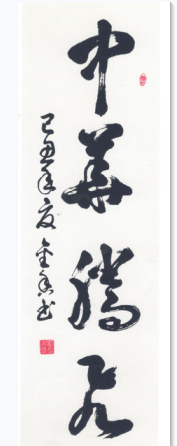 中華騰飛
己丑年夏 金书